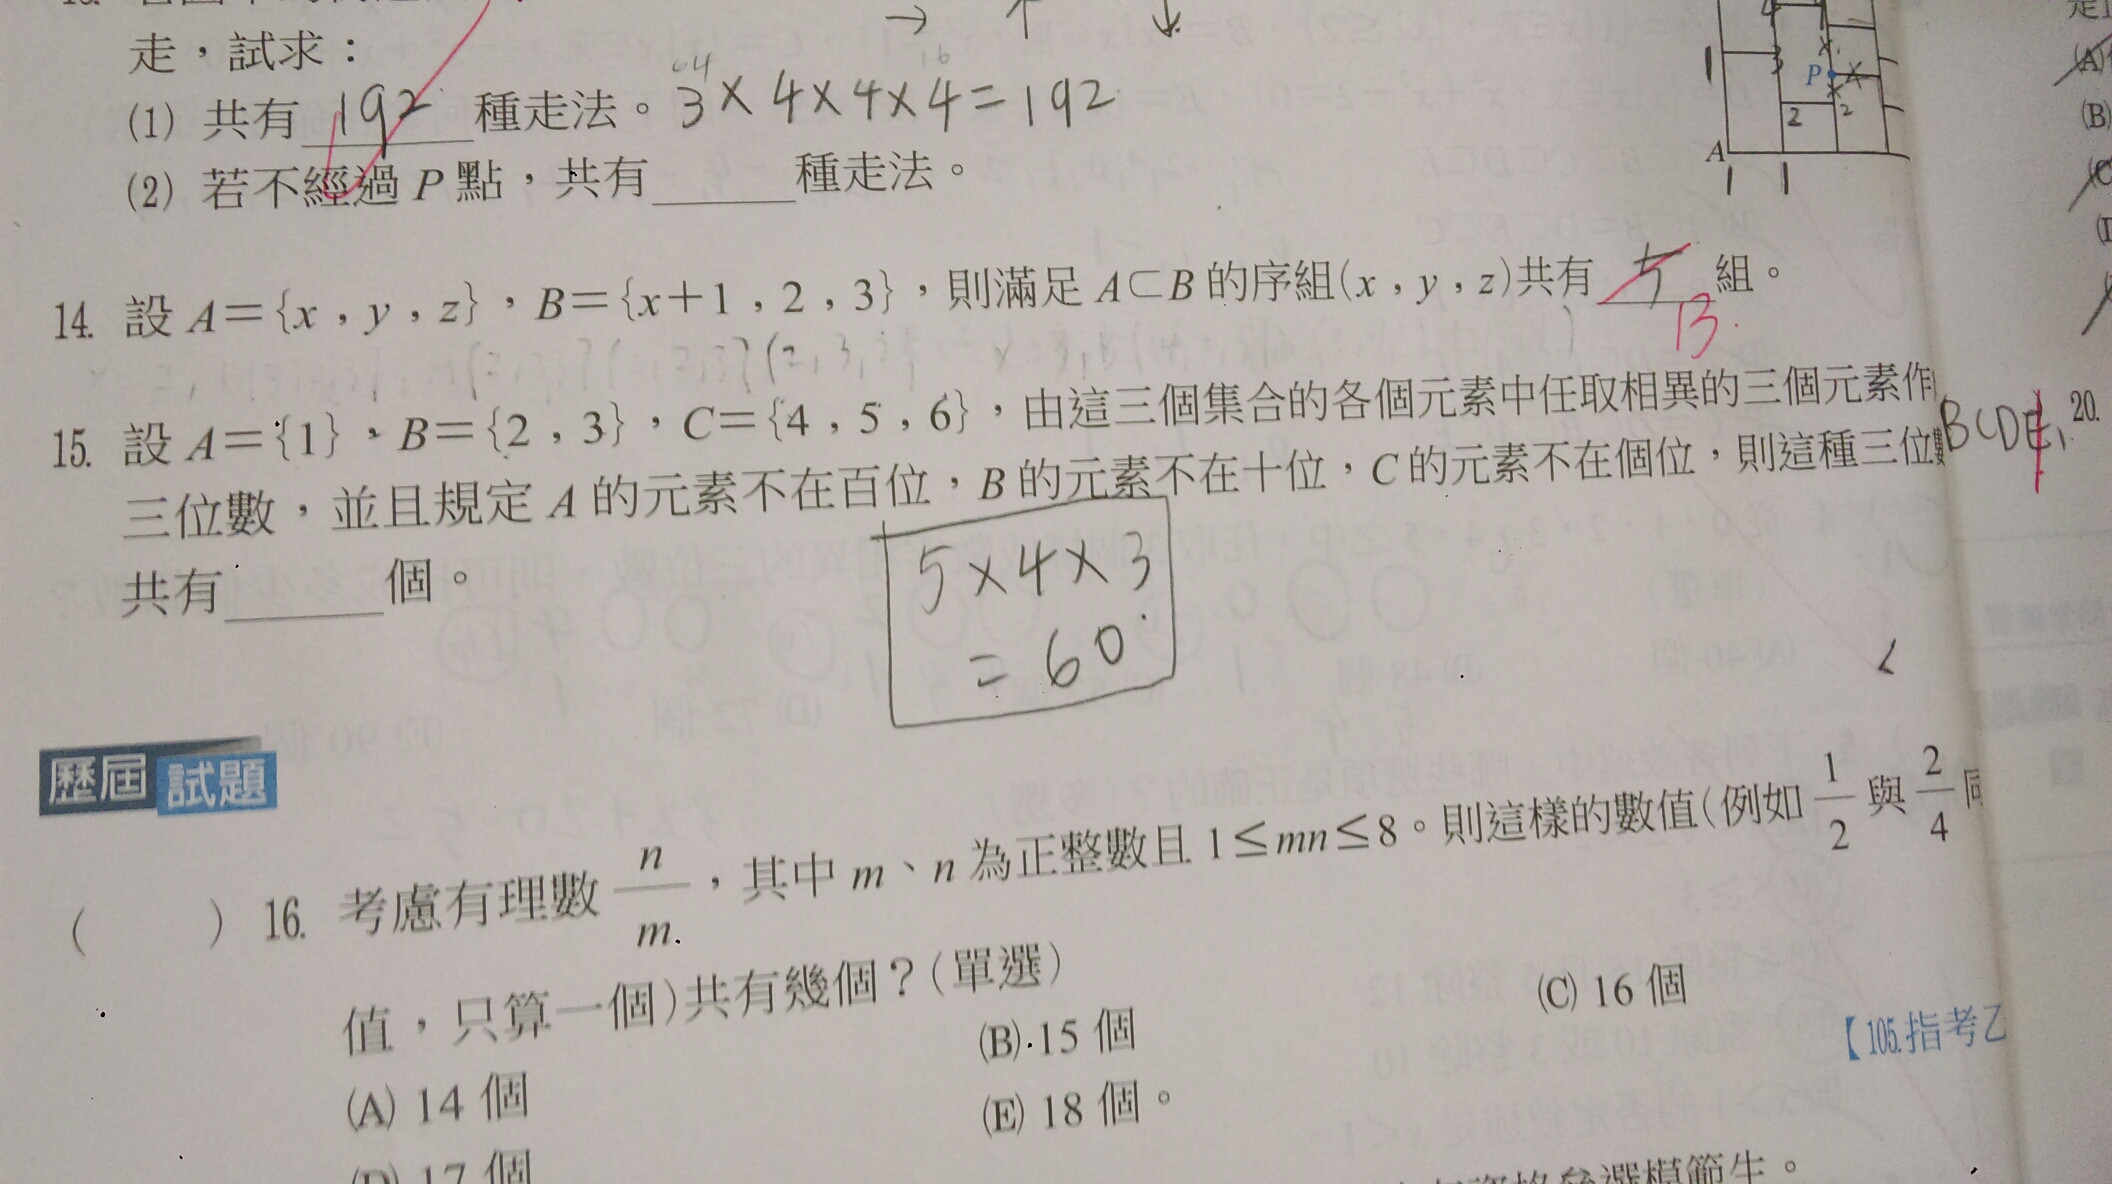 走,試求:
(1) 共有 192 種走法。3×4×4×4=192
(2) 若不經過 P 點,共有_____種走法。
4
1
3
P
2
2
A
1 1
14. 設 A={x,y,z},B={x+1,2,3},則滿足 A⊂B 的序組(x,y,z)共有 5 組。
13
15. 設 A={1},B={2,3},C={4,5,6},由這三個集合的各個元素中任取相異的三個元素作
三位數,並且規定 A 的元素不在百位,B 的元素不在十位,C 的元素不在個位,則這種三位數
共有_____個。
5×4×3
=60
歷屆試題
( ) 16. 考慮有理數 n/m,其中 m、n 為正整數且 1≤mn≤8。則這樣的數值(例如 1/2 與 2/4 同
值,只算一個)共有幾個?(單選)
(A) 14 個
(B) 15 個
(C) 16 個
(D) 17 個
(E) 18 個。
【105.指考乙
(A)
(B)
BCDE
20.